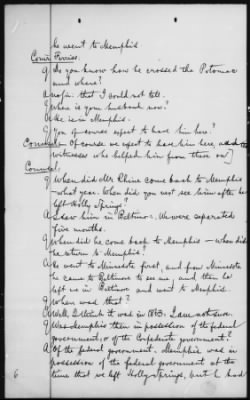 he went to Memphis.
Q Do you know how he crossed the Potomac
and where?
A No sir. that I could not tell.
Q Where is your husband now?
A He is in Memphis.
Q You of course expect to have him here?
Of course we expect to have him here, and the
witnesses who helped him from there on
Counsel
Q When did Mr Rhine come back to Memphis
— what year. When did you next see him after he
left Holly Springs?
A I saw him in Baltimore. We were separated
five months.
Q When did he come back to Memphis — when did
he return to Memphis?
A He went to Minnesota first, and from Minnesota
he came to Baltimore to see me, and then he
left me in Baltimore and went to Memphis.
Q When was that?
A Well I think it was in 1863; I am not sure.
Q Was Memphis then in possession of the federal
government, or of the Confederate government?
A Of the federal government. Memphis was in
possession of the federal government at the
time that we left Holly Springs, but he had
6